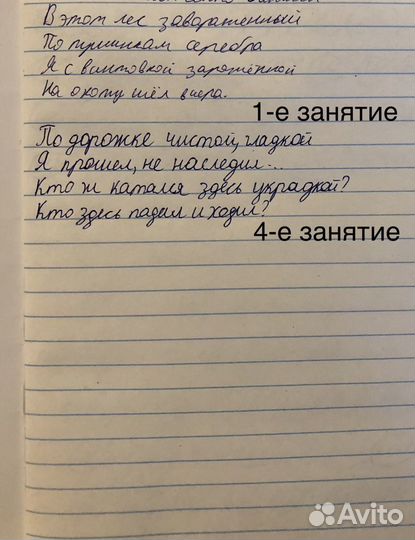 В этом лес завараженный
По пушинкам серебра
Я с винтовкой заряжённой
На охоту шёл вчера.
1-е занятие
По дорожке чистой, гладкой
Я прошёл, не наследил...
Кто ж катался здесь украдкой?
Кто здесь падал и ходил?
4-е занятие
Avito